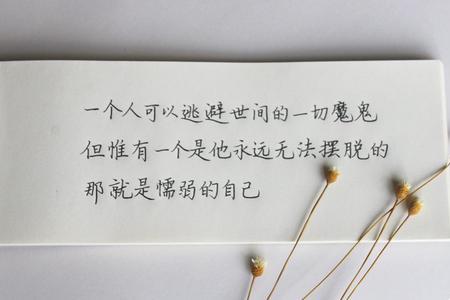 一个人可以逃避世间的一切魔鬼
但惟有一个是他永远无法摆脱的
那就是懦弱的自己